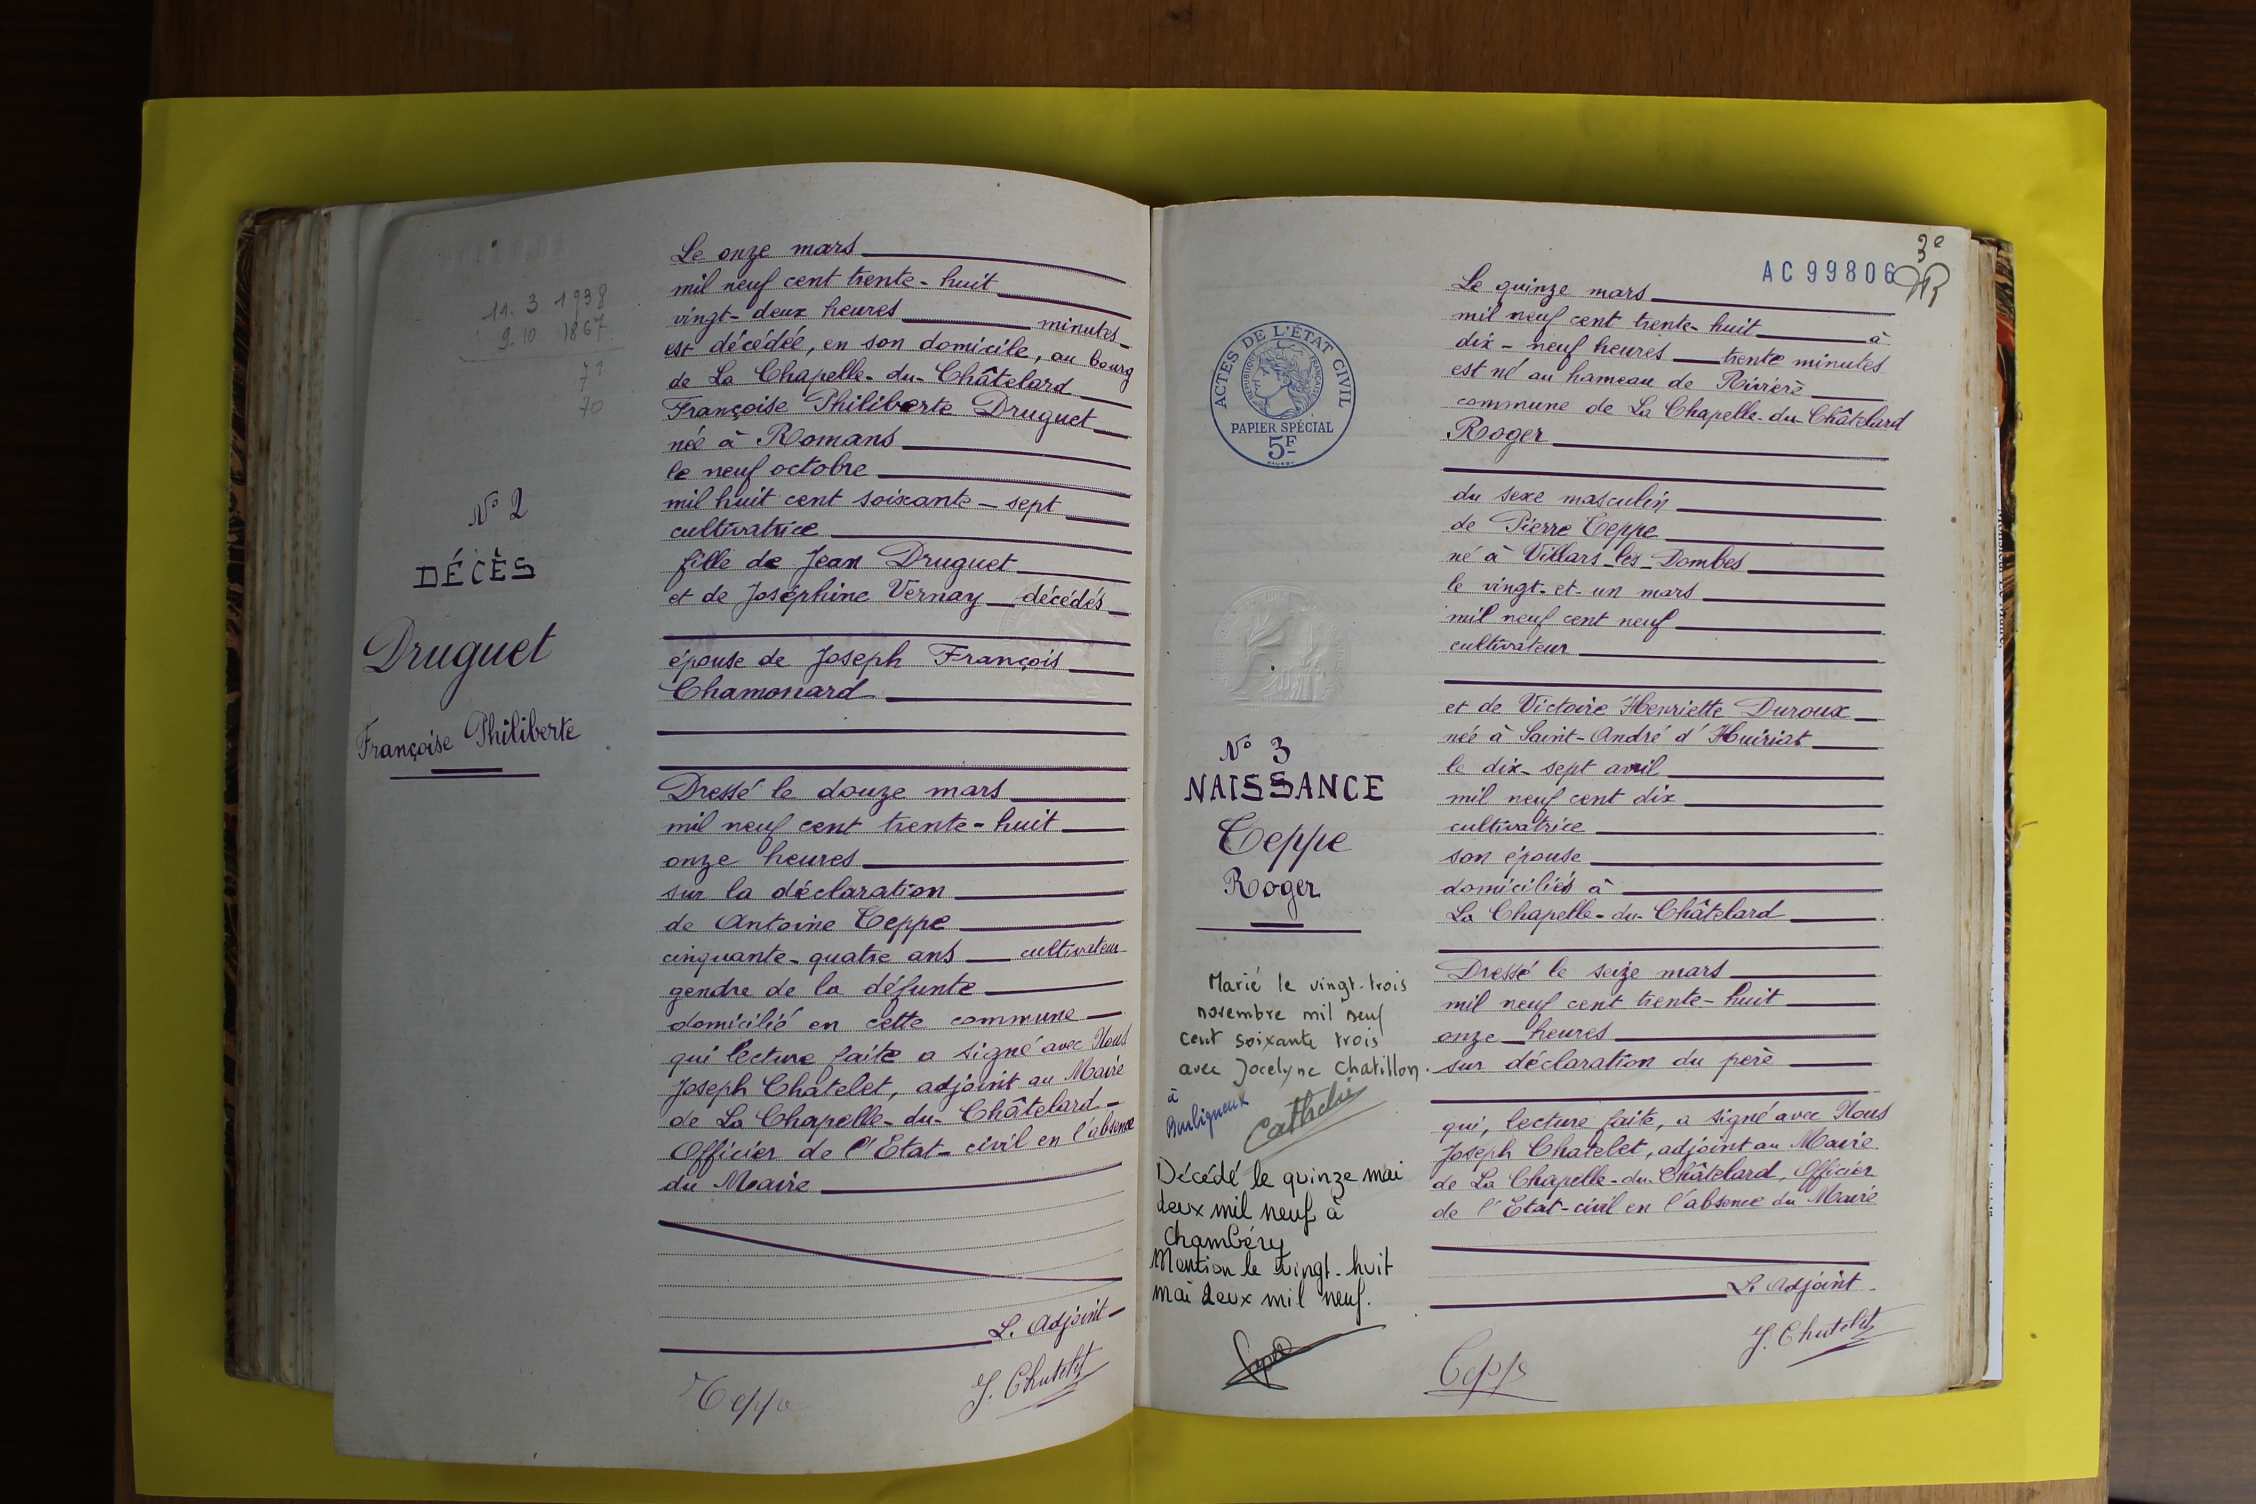 11. 3 1938
9. 10 1867
71
70
N° 2
DÉCÈS
Druguet
Françoise Philiberte
Le onze mars
mil neuf cent trente-huit
vingt-deux heures minutes
est décédée, en son domicile, au bourg
de La Chapelle-du-Châtelard
Françoise Philiberte Druguet
née à Romans
le neuf octobre
mil huit cent soixante-sept
cultivatrice
fille de Jean Druguet
et de Joséphine Vernay décédés
épouse de Joseph François
Chamonard
Dressé le douze mars
mil neuf cent trente-huit
onze heures
sur la déclaration
de Antoine Teppe
cinquante-quatre ans cultivateur
gendre de la défunte
domicilié en cette commune
qui lecture faite a signé avec Nous
Joseph Châtelet, adjoint au Maire
de La Chapelle-du-Châtelard
Officier de l'Etat-civil en l'absence
du Maire
L. Adjoint
Teppe
J. Chatelet
3e
AC 99806
ACTES DE L'ÉTAT CIVIL
RÉPUBLIQUE FRANÇAISE
PAPIER SPÉCIAL
5F
N° 3
NAISSANCE
Teppe
Roger
Marié le vingt-trois
novembre mil neuf
cent soixante trois
avec Jocelyne Chatillon.
à
Bouligneux
Décédé le quinze mai
deux mil neuf à
Chambéry
Mention le vingt-huit
mai deux mil neuf.
Le quinze mars
mil neuf cent trente-huit à
dix-neuf heures trente minutes
est né au hameau de Rivière
commune de La Chapelle-du-Châtelard
Roger
du sexe masculin
de Pierre Teppe
né à Villars-les-Dombes
le vingt-et-un mars
mil neuf cent neuf
cultivateur
et de Victoire Henriette Duroux
née à Saint-André d'Huiriat
le dix-sept avril
mil neuf cent dix
cultivatrice
son épouse
domiciliés à
La Chapelle-du-Châtelard
Dressé le seize mars
mil neuf cent trente-huit
onze heures
sur déclaration du père
qui, lecture faite, a signé avec Nous
Joseph Chatelet, adjoint au Maire
de La Chapelle-du-Châtelard, Officier
de l'Etat-civil en l'absence du Maire
L. Adjoint
Teppe
J. Chatelet